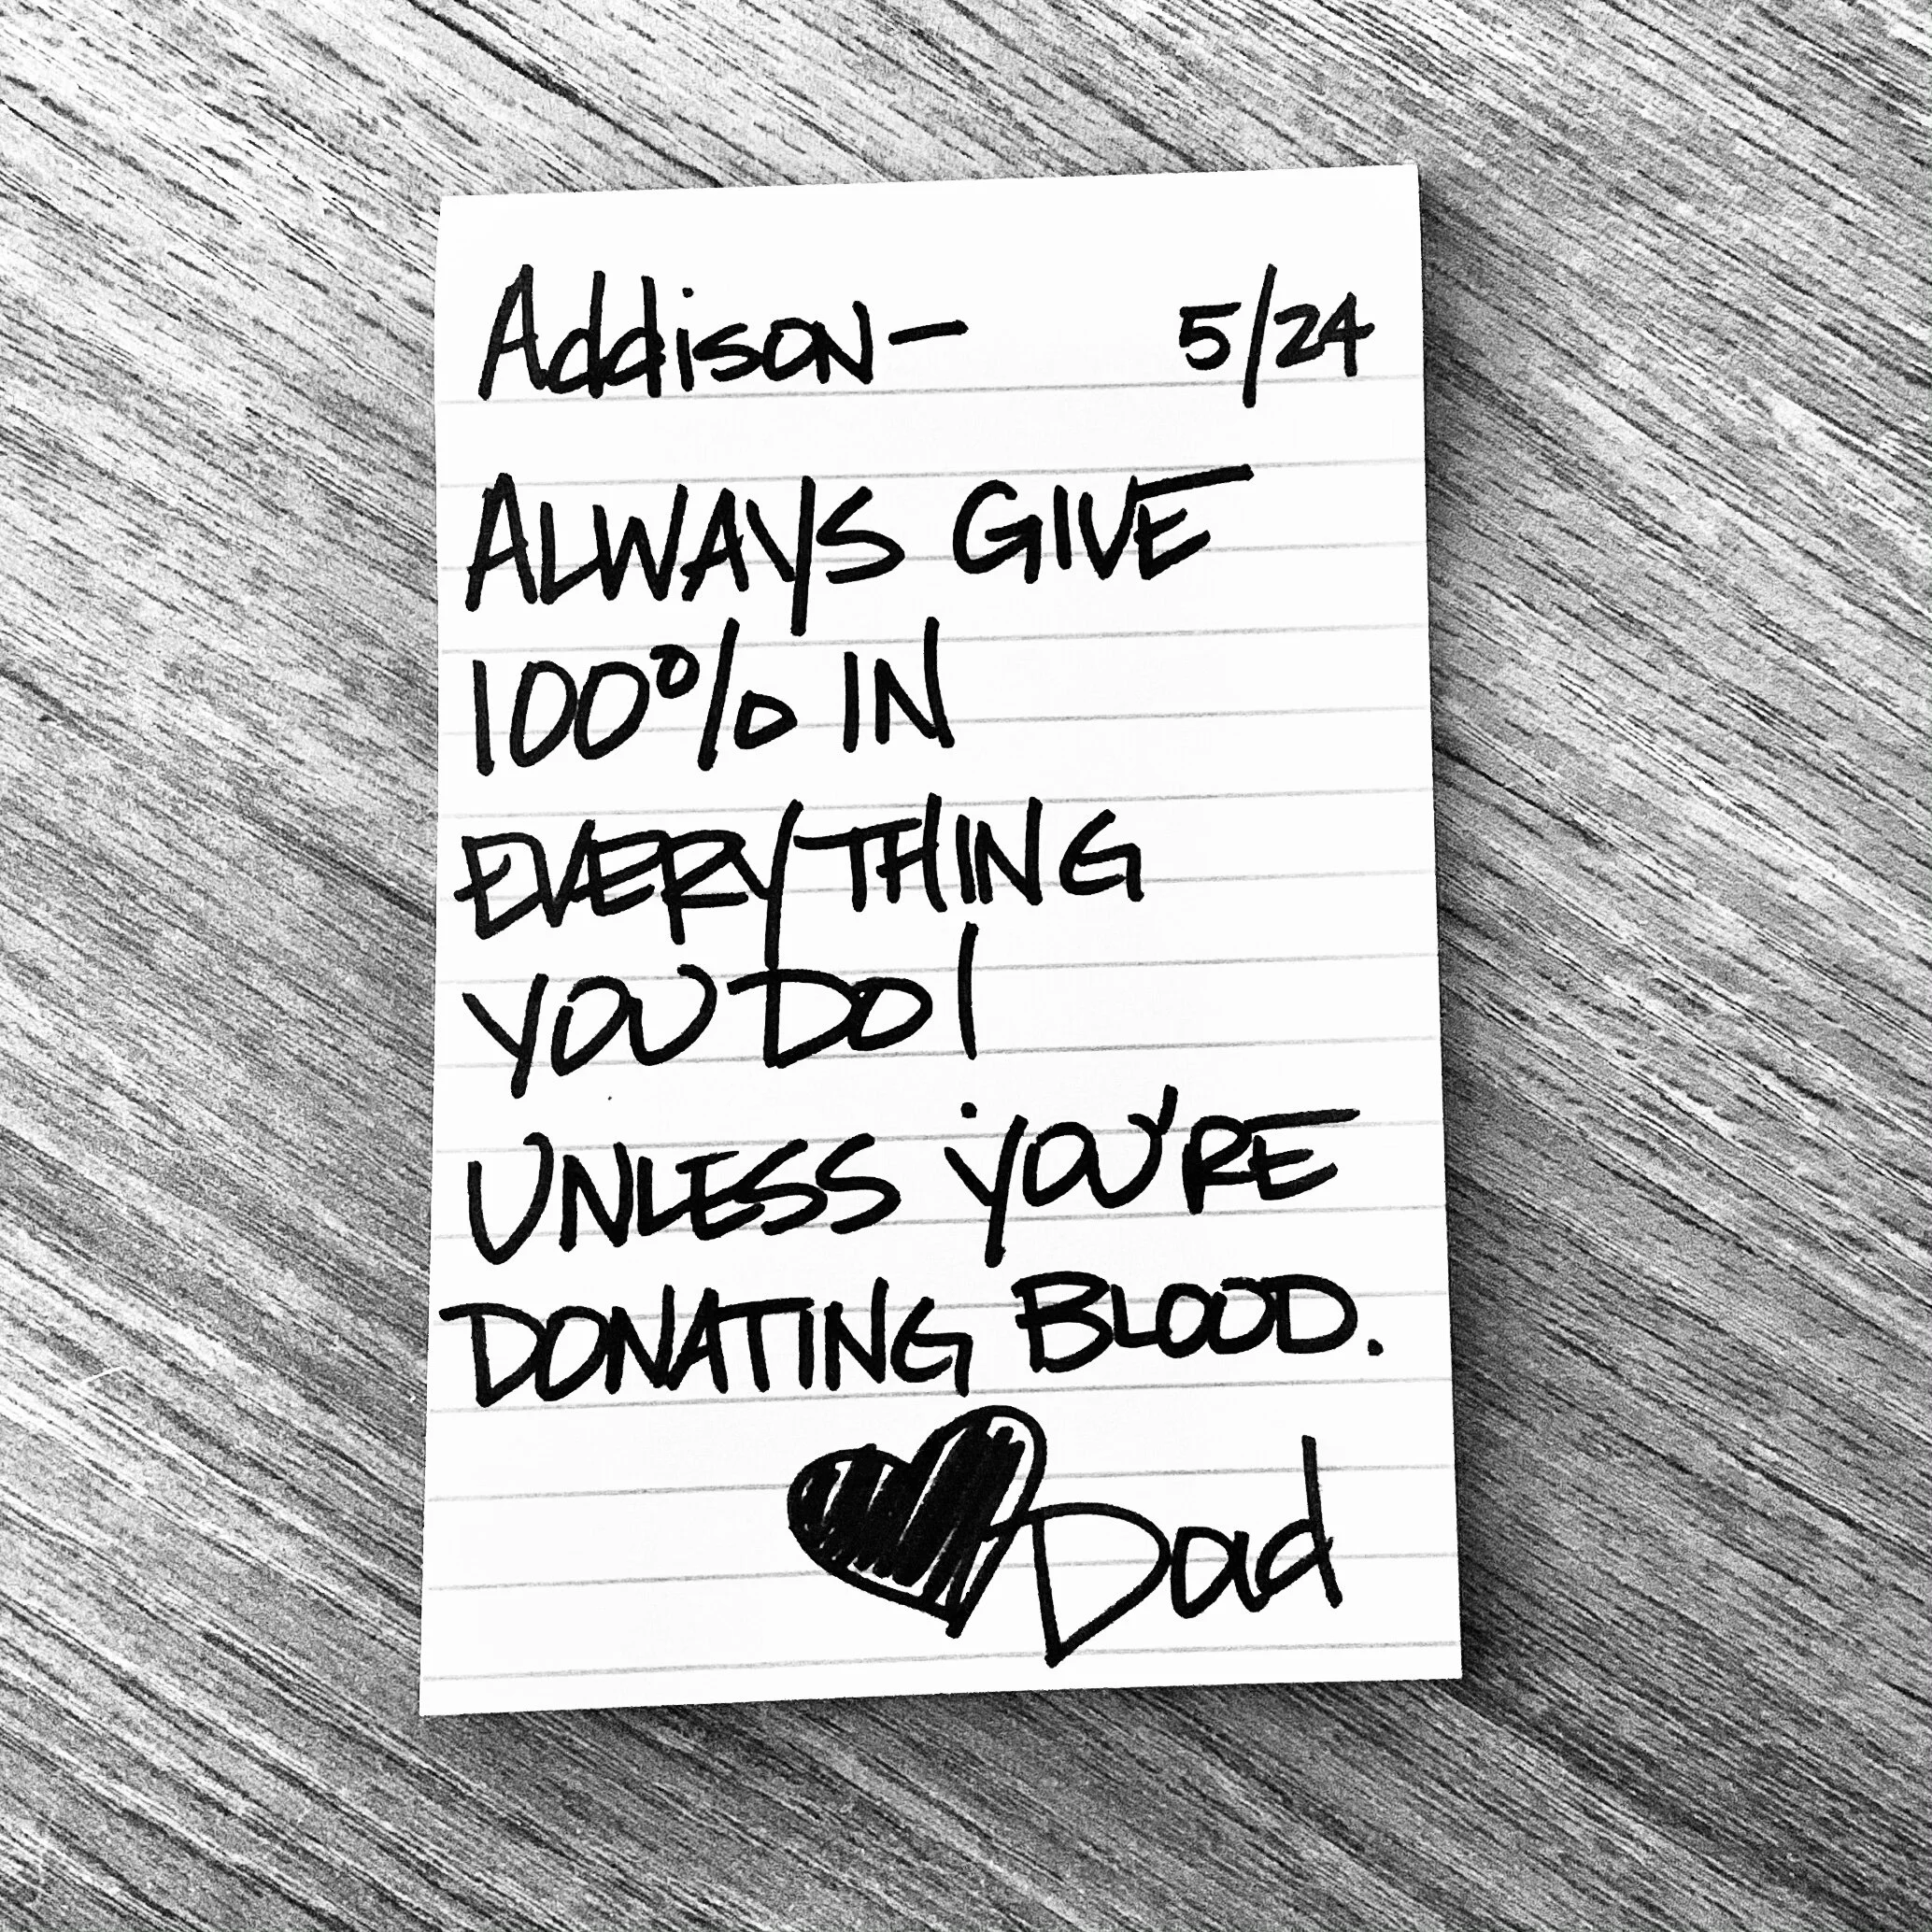 Addison- 5/24
ALWAYS GIVE
100% IN
EVERYTHING
YOU DO!
UNLESS YOU'RE
DONATING BLOOD.
♥Dad